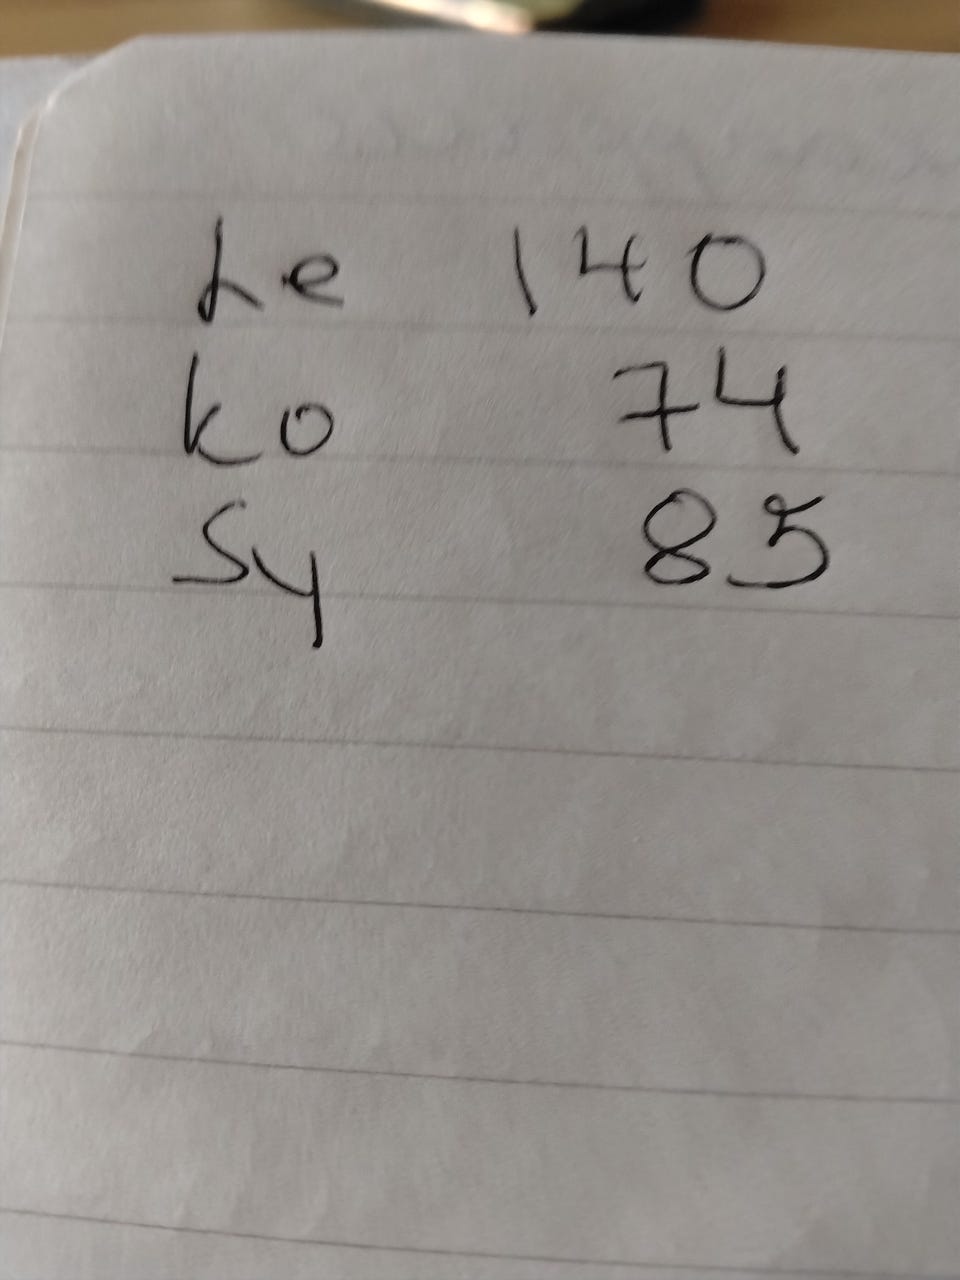 Le 140
Ko 74
Sy 85